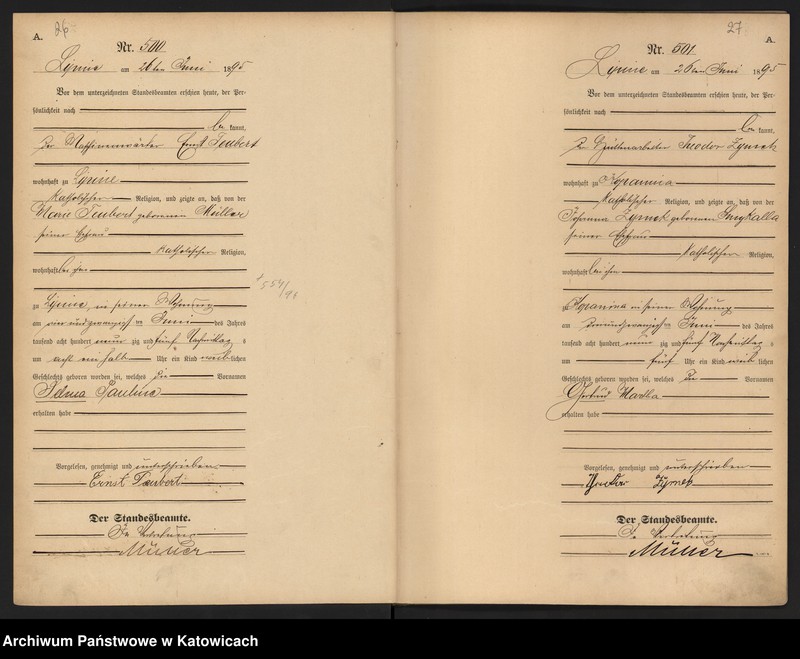 26
A.
Nr. 500
Lipine am 26ten Juni 1895
Vor dem unterzeichneten Standesbeamten erschien heute, der Per-
sönlichkeit nach
be kannt,
der Ernst Teubert
wohnhaft zu Lipine
katholischer Religion, und zeigte an, daß von der
Marie Teubert geborenen Müller
seiner Ehefrau
katholischer Religion,
wohnhaft bei ihm
zu Lipine, in seiner Wohnung
am vierundzwanzigsten Juni des Jahres
tausend acht hundert neun zig und fünf Nachmittags
um acht einhalb Uhr ein Kind weib lichen
Geschlechts geboren worden sei, welches die Vornamen
Selma Pauline
erhalten habe
Vorgelesen, genehmigt und unterschrieben
Ernst Teubert
Der Standesbeamte.
In Vertretung
Müller
27
A.
Nr. 501
Lipine am 26ten Juni 1895
Vor dem unterzeichneten Standesbeamten erschien heute, der Per-
sönlichkeit nach
be kannt,
Theodor Zymek
wohnhaft zu
katholischer Religion, und zeigte an, daß von der
Johanna Zymek geborenen
seiner Ehefrau
katholischer Religion,
wohnhaft bei ihm
zu in seiner Wohnung
am Juni des Jahres
tausend acht hundert neun zig und fünf Nachmittags
um fünf Uhr ein Kind weib lichen
Geschlechts geboren worden sei, welches die Vornamen
Gertrud Martha
erhalten habe
Vorgelesen, genehmigt und unterschrieben
Zymek
Der Standesbeamte.
In Vertretung
Müller
Archiwum Państwowe w Katowicach